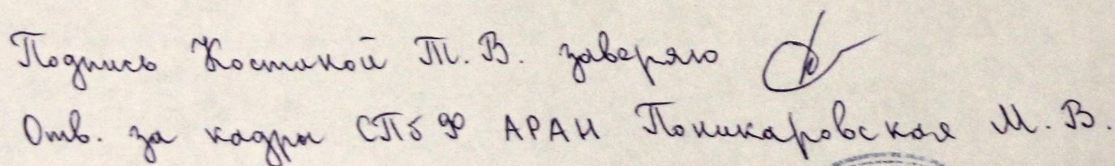 Подпись Костиной Т. В. заверяю
Отв. за кадры СПбФ АРАН Поникаровская М. В.